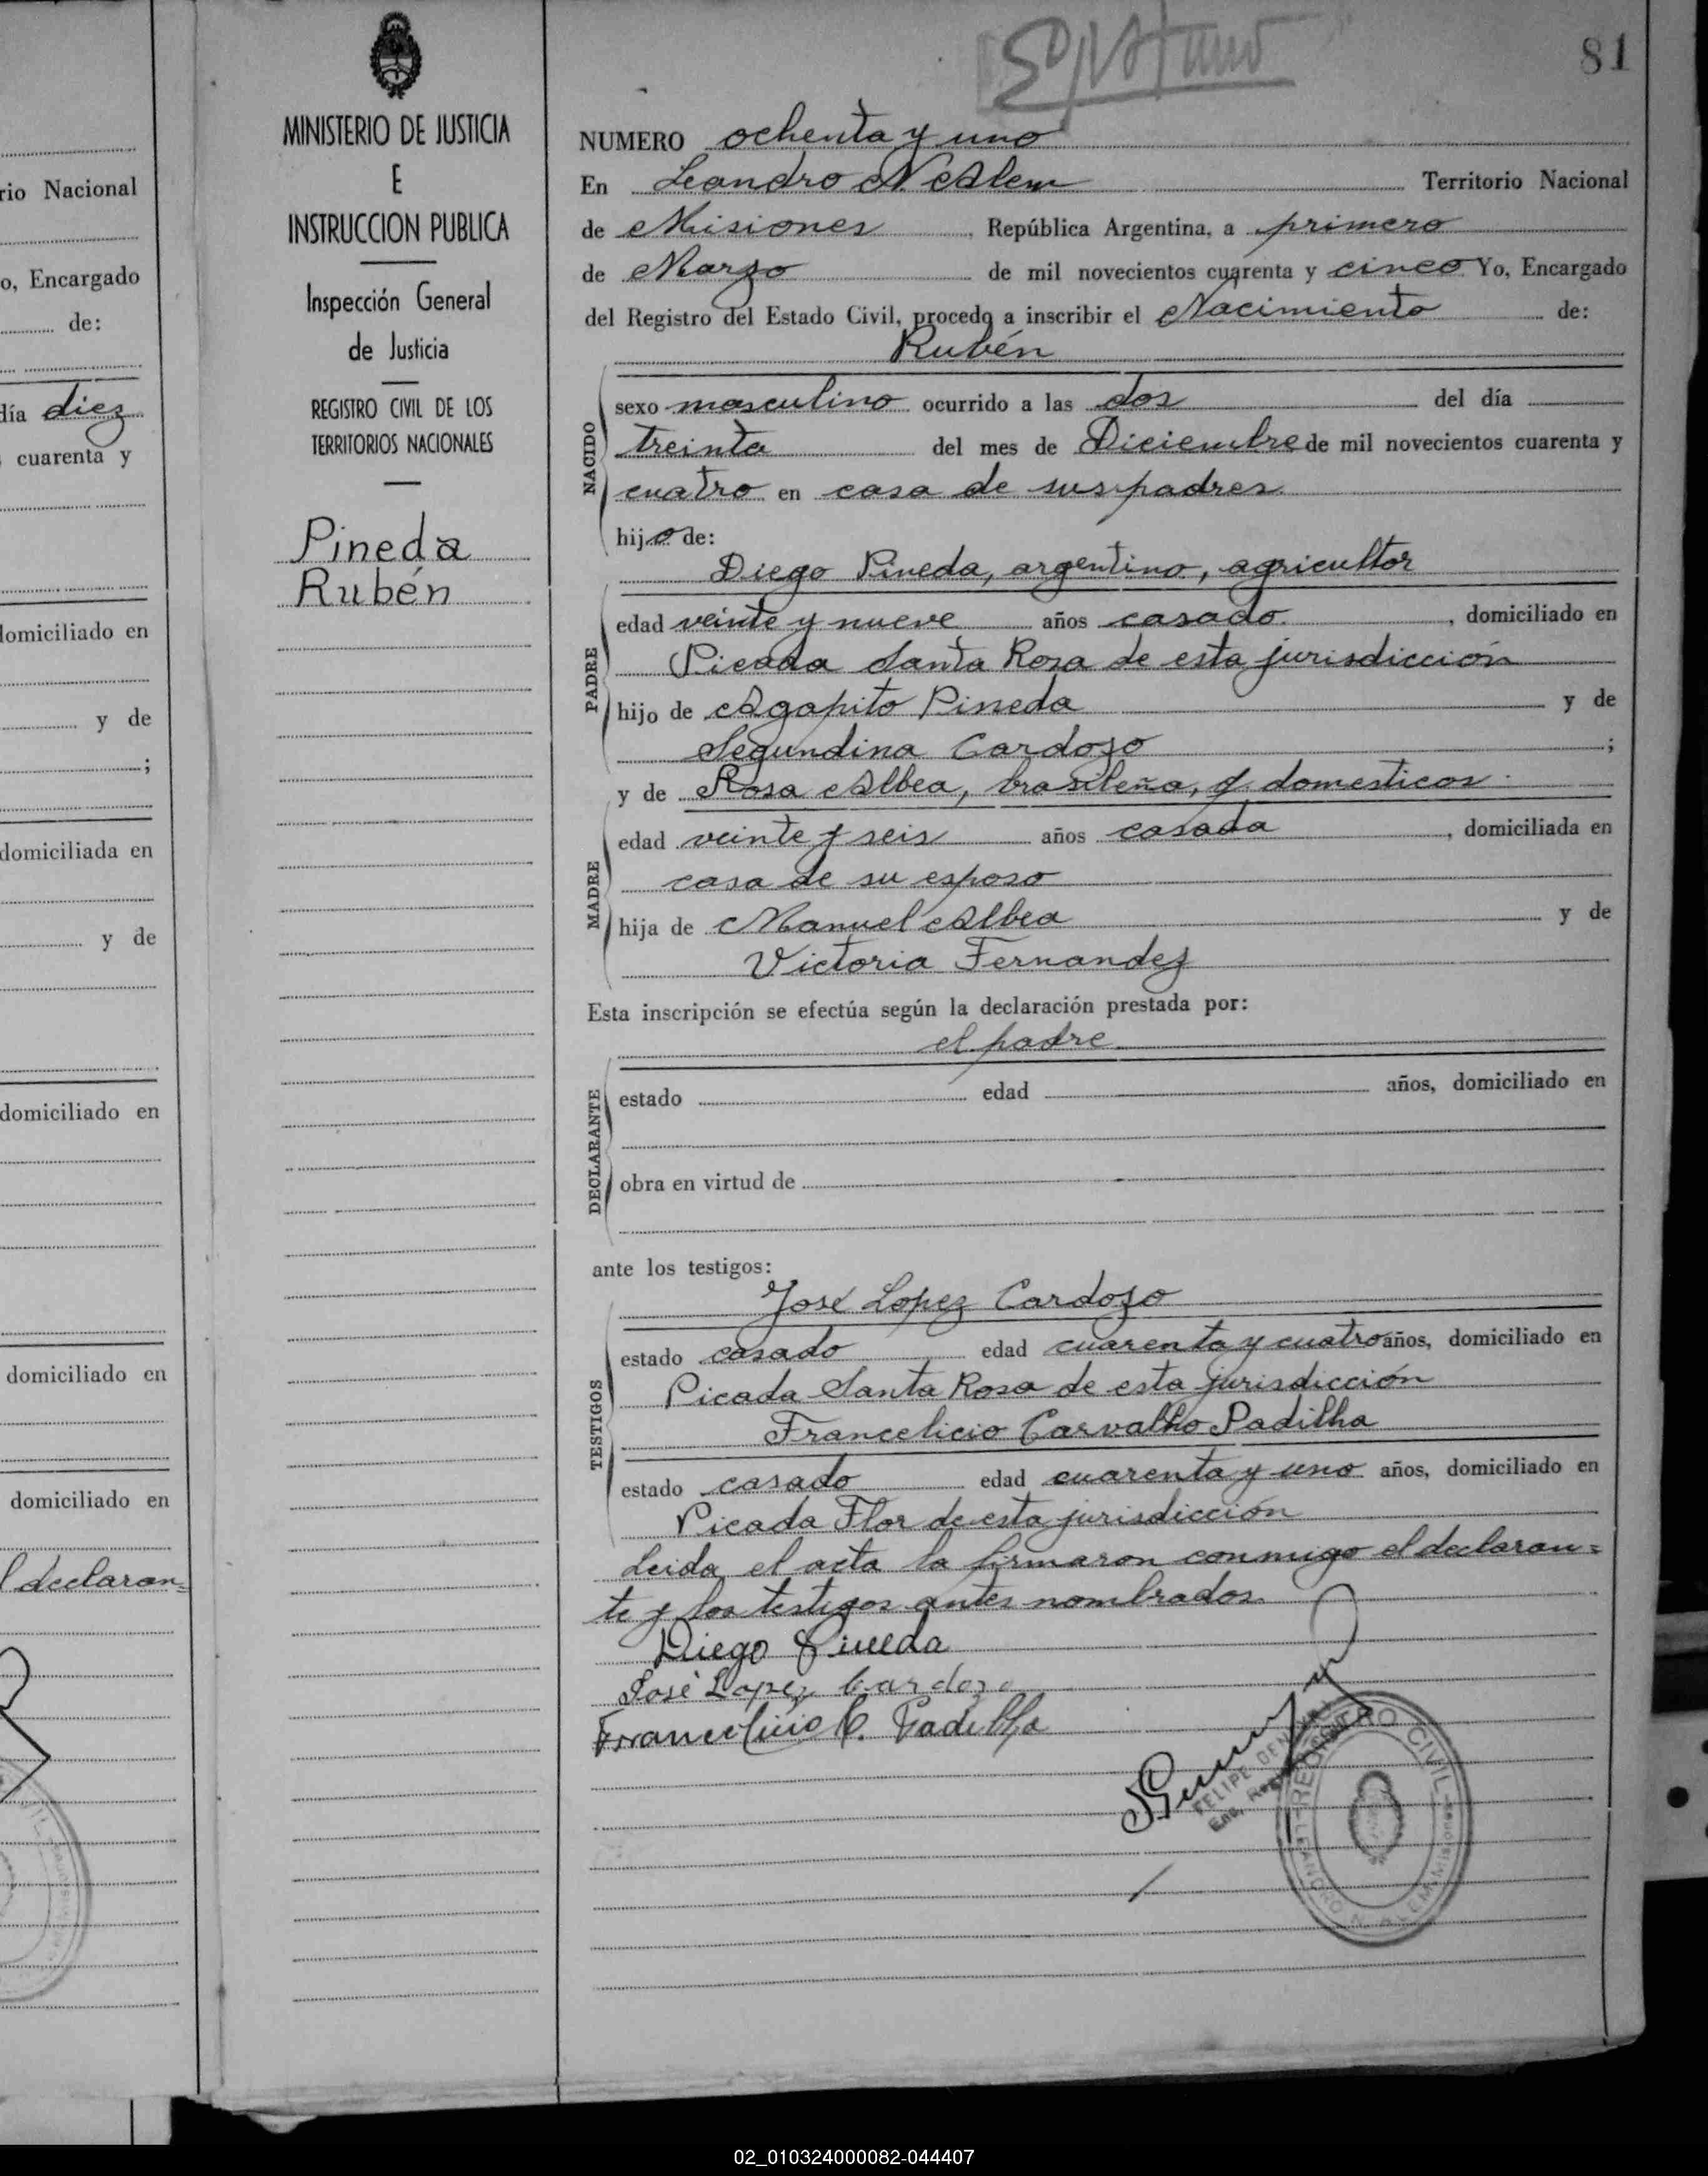 81
MINISTERIO DE JUSTICIA
E
INSTRUCCION PUBLICA
Inspección General
de Justicia
REGISTRO CIVIL DE LOS
TERRITORIOS NACIONALES
Pineda
Rubén
NUMERO ochenta y uno
En Leandro N Alem Territorio Nacional
de Misiones, República Argentina, a primero
de Marzo de mil novecientos cuarenta y cinco Yo, Encargado
del Registro del Estado Civil, procedo a inscribir el Nacimiento de:
Rubén
NACIDO
sexo masculino ocurrido a las dos del día
treinta del mes de Diciembre de mil novecientos cuarenta y
cuatro en casa de sus padres
hijo de:
Diego Pineda, argentino, agricultor
PADRE
edad veinte y nueve años casado, domiciliado en
Picada Santa Rosa de esta jurisdicción
hijo de Agapito Pineda y de
Segundina Cardozo;
y de Rosa Albea, brasileña, q. domesticos
MADRE
edad veinte y seis años casada, domiciliada en
casa de su esposo
hija de Manuel Albea y de
Victoria Fernandez
Esta inscripción se efectúa según la declaración prestada por:
el padre
DECLARANTE
estado edad años, domiciliado en
obra en virtud de
ante los testigos:
José Lopez Cardozo
TESTIGOS
estado casado edad cuarenta y cuatro años, domiciliado en
Picada Santa Rosa de esta jurisdicción
Francelicio Carvalho Padilha
estado casado edad cuarenta y uno años, domiciliado en
Picada Flor de esta jurisdicción
Leida el acta la firmaron conmigo el declaran=
te y los testigos antes nombrados
Diego Pineda
José Lopez Cardozo
Francelicio C. Padilha
FELIPE
REGISTRO CIVIL
LEANDRO N. ALEM Misiones
rio Nacional
o, Encargado
de:
día diez
cuarenta y
domiciliado en
y de
;
domiciliada en
y de
domiciliado en
domiciliado en
domiciliado en
l declaran=
02_010324000082-044407